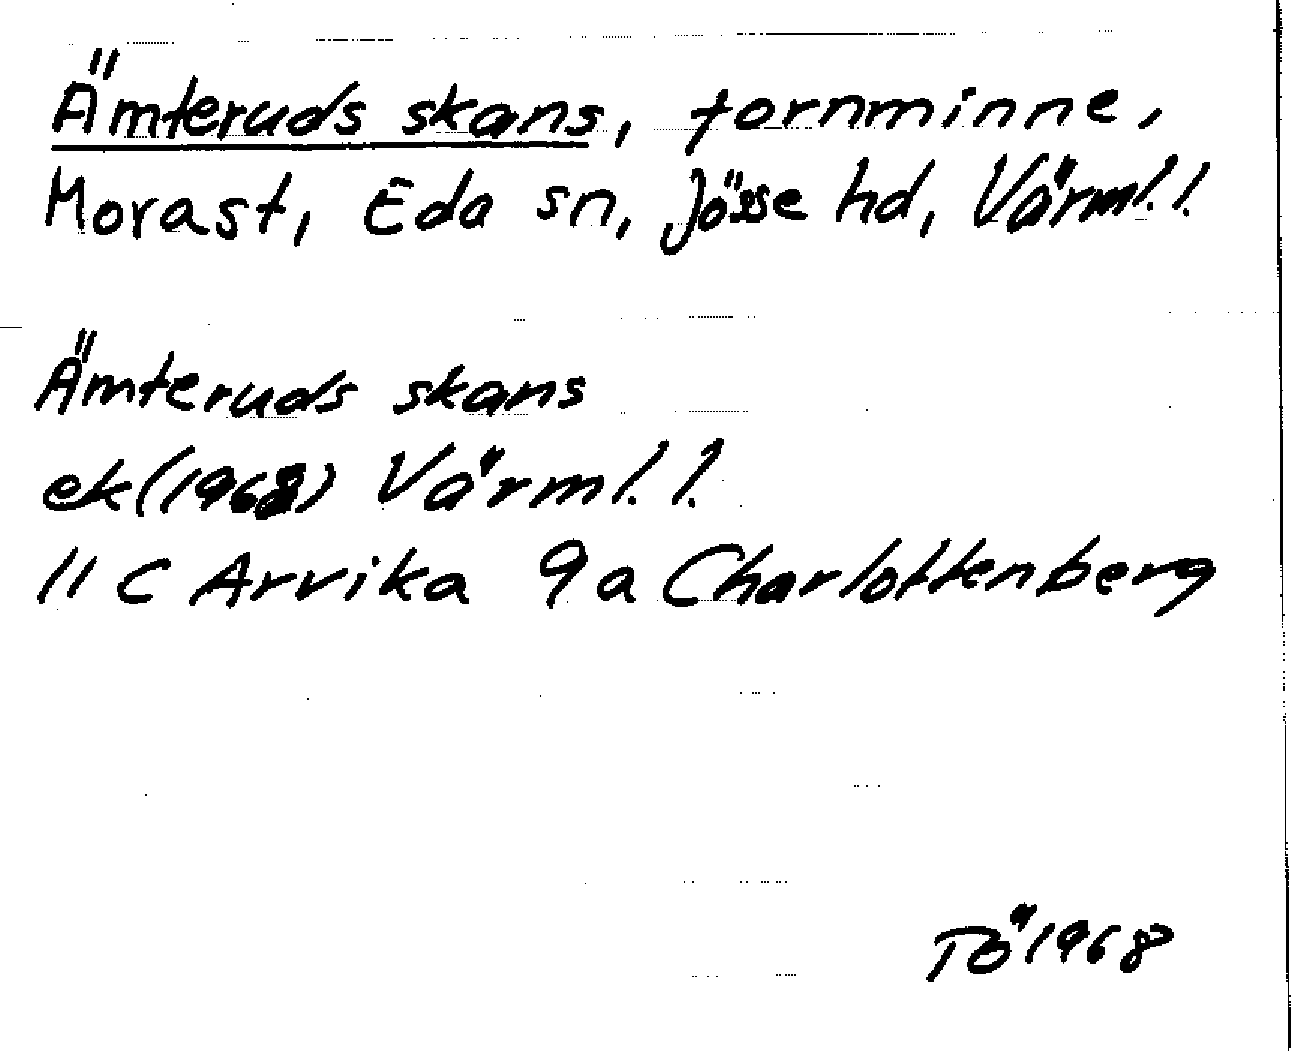 Ämteruds skans, fornminne,
Morast, Eda sn, Jösse hd, Värml. l.
Ämteruds skans
ek (1968) Värml. l.
11 C Arvika 9a Charlottenberg
TÖ 1968